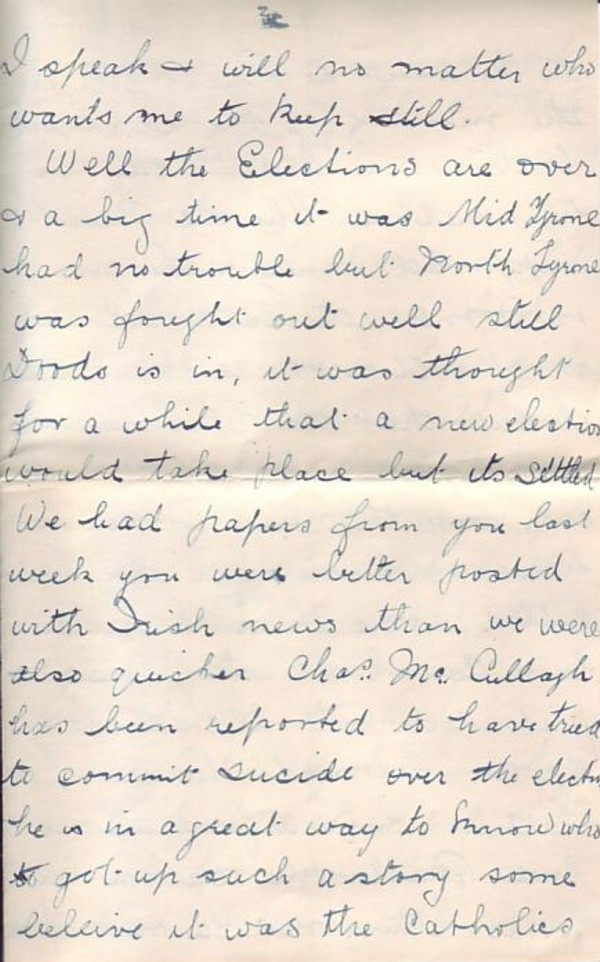 I speak & will no matter who
wants me to keep still.
Well the Elections are over
& a big time it was Mid Tyrone
had no trouble but North Tyrone
was fought out well still
Dodds is in, it was thought
for a while that a new election
would take place but its settled
We had papers from you last
week you were better posted
with Irish news than we were
also quicker Chas. Mc. Cullagh
has been reported to have tried
to commit sucide over the electn
he is in a great way to know who
got up such a story some
beleive it was the Catholics